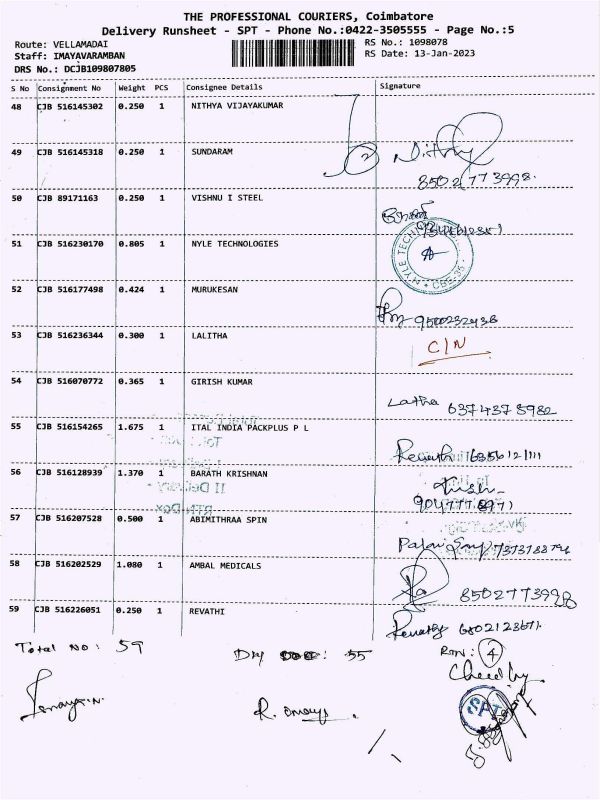 THE PROFESSIONAL COURIERS, Coimbatore
Delivery Runsheet - SPT - Phone No.:0422-3505555 - Page No.:5
Route: VELLAMADAI
RS No.: 1098078
Staff: IMAYAVARAMBAN
RS Date: 13-Jan-2023
DRS No.: DCJB109807805
S No Consignment No Weight PCS Consignee Details Signature
48 CJB 516145302 0.250 1 NITHYA VIJAYAKUMAR
49 CJB 516145318 0.250 1 SUNDARAM
2 Nithy
8502773998.
50 CJB 89171163 0.250 1 VISHNU I STEEL
51 CJB 516230170 0.805 1 NYLE TECHNOLOGIES
NYLE TECHN CBE-35
52 CJB 516177498 0.424 1 MURUKESAN
9500232438
53 CJB 516236344 0.300 1 LALITHA
C/N
54 CJB 516070772 0.365 1 GIRISH KUMAR
Latha 6374378982
55 CJB 516154265 1.675 1 ITAL INDIA PACKPLUS P L
56 CJB 516128939 1.370 1 BARATH KRISHNAN
57 CJB 516207528 0.500 1 ABIMITHRAA SPIN
58 CJB 516202529 1.080 1 AMBAL MEDICALS
8502773998
59 CJB 516226051 0.250 1 REVATHI
Revathy
Total No: 59
Dly : 55
RTN: 4
SPT